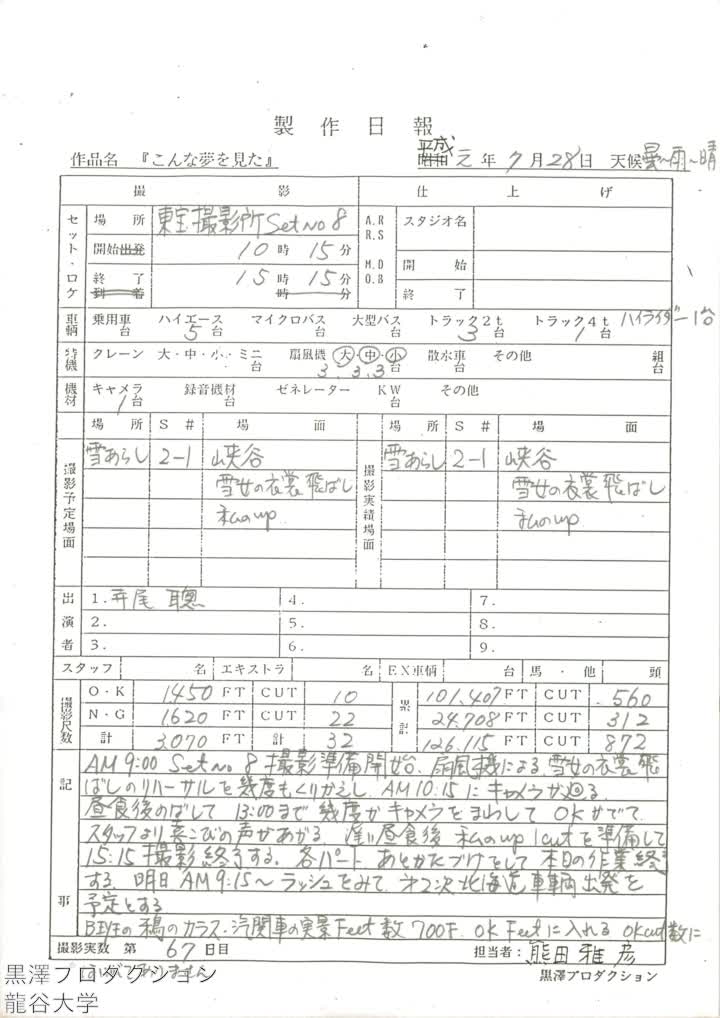 製作日報
作品名 『こんな夢を見た』 平成 昭和 元年 7月28日 天候 曇〜雨〜晴
撮影 仕上げ
セット・ロケ 場所 東宝撮影所 Set No 8 A.R R.S スタジオ名
開始 出発 10時15分
終了 到着 15時15分 時 分 M.D O.B 開始
終了
車輌 乗用車 台 ハイエース 5台 マイクロバス 台 大型バス 台 トラック2t 3台 トラック4t 1台 ハイライダー1台
特機 クレーン 大・中・小・ミニ 台 扇風機 大・中・小 3.3.3台 散水車 台 その他 組 台
機材 キャメラ 1台 録音機材 台 ゼネレーター KW 台 その他
場所 S# 場面 場所 S# 場面
撮影予定場面 雪あらし 2-1 峡谷 撮影実績場面 雪あらし 2-1 峡谷
雪女の衣裳飛ばし 雪女の衣裳飛ばし
私のup 私のup
出演者 1. 寺尾 聰 4. 7.
2. 5. 8.
3. 6. 9.
スタッフ 名 エキストラ 名 EX車輌 台 馬・他 頭
撮影尺数 O・K 1450 FT CUT 10 累計 101,407 FT CUT 560
N・G 1620 FT CUT 22 24,708 FT CUT 312
計 3,070 FT 計 32 126,115 FT CUT 872
記 AM 9:00 Set No 8 撮影準備開始、扇風機による、雪女の衣裳飛
ばしのリハーサルを幾度もくりかえし、AM 10:15 にキャメラが廻る。
昼食後のばして 13:00まで幾度かキャメラをまわして OKがでて、
スタッフより喜こびの声があがる。遅い昼食後 私のup 1cutを準備して
15:15 撮影終了する。各パート あとかたづけをして 本日の作業終了
する。明日 AM 9:15〜ラッシュをみて 第2次北海道車輌出発を
事 予定とする
B班の鴉のカラス・汽関車の実景Feet数 700F. OK Feetに入れる OKcut数に
撮影実数 第 67日目 担当者: 熊田雅彦
はいっておりません 黒澤プロダクション
黒澤プロダクション
龍谷大学